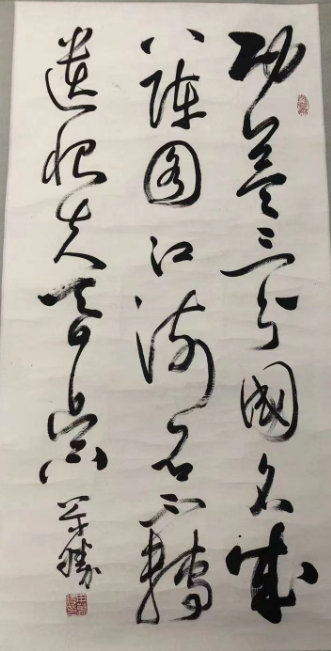 功蓋三分國名成
八陣图江流石不轉
遺恨失吞吳
勝